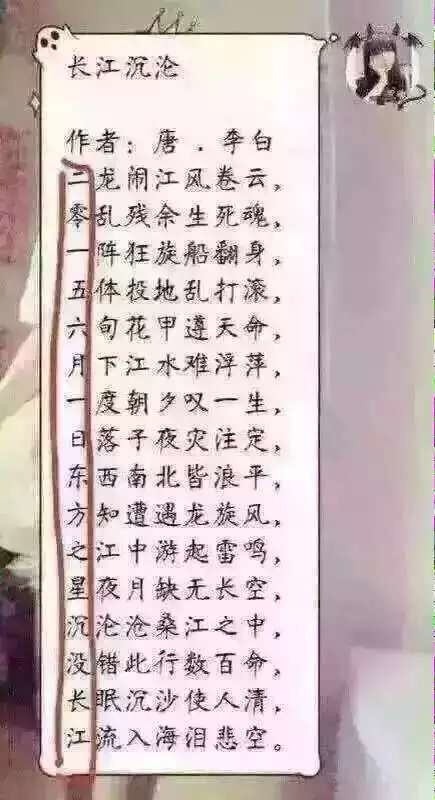 长江沉沦
作者：唐．李白
二龙闹江风卷云，
零乱残余生死魂，
一阵狂旋船翻身，
五体投地乱打滚，
六旬花甲遵天命，
月下江水难浮萍，
一度朝夕叹一生，
日落子夜灾注定，
东西南北皆浪平，
方知遭遇龙旋风，
之江中游起雷鸣，
星夜月缺无长空，
沉沦沧桑江之中，
没错此行数百命，
长眠沉沙使人清，
江流入海泪悲空。